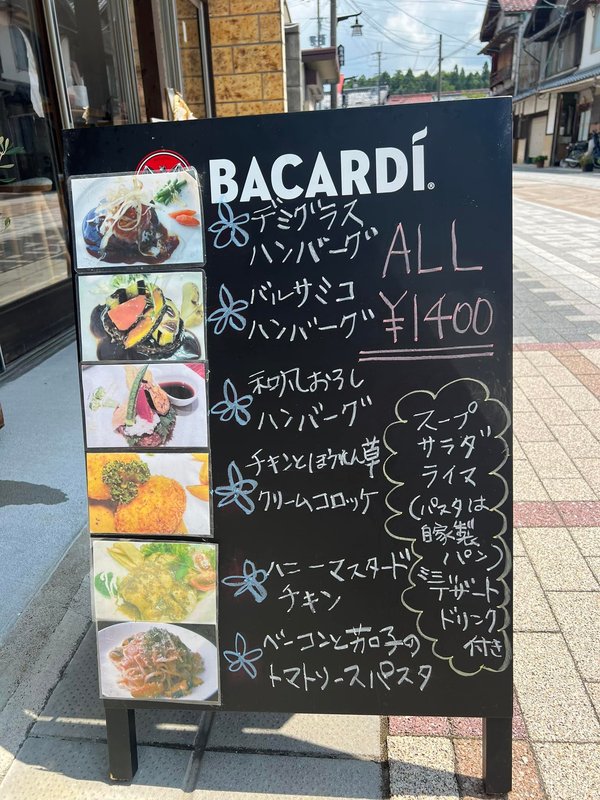 BACARDÍ®
デミグラス
ハンバーグ
バルサミコ
ハンバーグ
和風おろし
ハンバーグ
チキンとほうれん草
クリームコロッケ
ハニーマスタード
チキン
ベーコンと茄子の
トマトソースパスタ
ALL
¥1400
スープ
サラダ
ライス
(パスタは
自家製
パン)
ミニデザート
ドリンク
付き